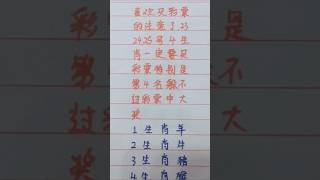 喜欢买彩票
的注意了23
24.25号4生
肖一定要买
彩票特别是
第4名躲不
过彩票中大
奖
1生肖羊
2生肖牛
3生肖猪
4生肖猴